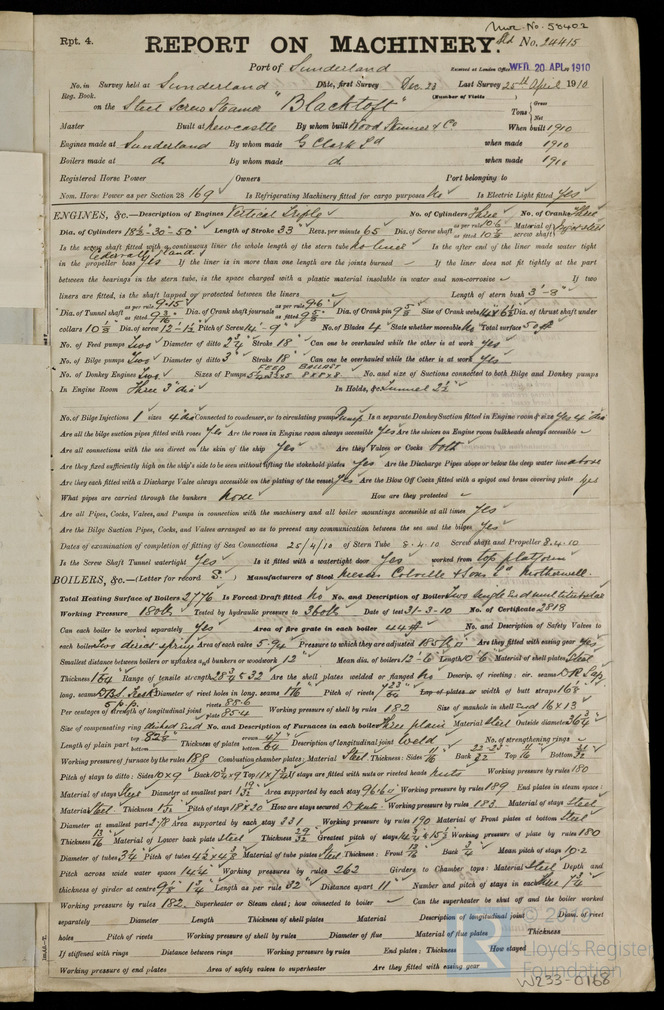 Nwc. No. 58402
Rpt. 4.
REPORT ON MACHINERY.
No. 24415
Port of Sunderland
Received at London Office WED. 20 APL 1910
No. in Survey held at Sunderland Date, first Survey Dec. 23 Last Survey 25th April 1910
Reg. Book. (Number of Visits
on the Steel Screw Steamer "Blacktoft" Tons { Gross Net
Master Built at Newcastle By whom built Wood Skinner & Co When built 1910
Engines made at Sunderland By whom made G Clark Ld when made 1910
Boilers made at do By whom made do when made 1910
Registered Horse Power Owners Port belonging to
Nom. Horse Power as per Section 28 169 Is Refrigerating Machinery fitted for cargo purposes No Is Electric Light fitted Yes
ENGINES, &c.—Description of Engines Vertical Triple No. of Cylinders Three No. of Cranks Three
Dia. of Cylinders 18½-30-50 Length of Stroke 33 Revs. per minute 65 Dia. of Screw shaft as per rule 10.6 as fitted 10⅞ Material of screw shaft
Is the screw shaft fitted with a continuous liner the whole length of the stern tube No liner Is the after end of the liner made water tight
in the propeller boss Yes If the liner is in more than one length are the joints burned If the liner does not fit tightly at the part
between the bearings in the stern tube, is the space charged with a plastic material insoluble in water and non-corrosive If two
liners are fitted, is the shaft lapped or protected between the liners Length of stern bush 3'-8"
Dia. of Tunnel shaft as per rule 9.15 as fitted Dia. of Crank shaft journals as per rule 9.6 as fitted 9⅝ Dia. of Crank pin 9⅝ Size of Crank webs Dia. of thrust shaft under
collars 10⅛ Dia. of screw 12-1½ Pitch of Screw 14'-9" No. of Blades 4 State whether moveable No Total surface 50 sq ft
No. of Feed pumps Two Diameter of ditto 2¾ Stroke 18 Can one be overhauled while the other is at work Yes
No. of Bilge pumps Two Diameter of ditto 3 Stroke 18 Can one be overhauled while the other is at work Yes
No. of Donkey Engines Two Sizes of Pumps FEED BALLAST 8x8x8 No. and size of Suctions connected to both Bilge and Donkey pumps
In Engine Room Three 3" dia In Holds, &c. Tunnel 2½
No. of Bilge Injections 1 sizes 4 dia Connected to condenser, or to circulating pump Pump Is a separate Donkey Suction fitted in Engine room & size Yes 4" dia
Are all the bilge suction pipes fitted with roses Yes Are the roses in Engine room always accessible Yes Are the sluices on Engine room bulkheads always accessible
Are all connections with the sea direct on the skin of the ship Yes Are they Valves or Cocks both
Are they fixed sufficiently high on the ship's side to be seen without lifting the stokehold plates Yes Are the Discharge Pipes above or below the deep water line above
Are they each fitted with a Discharge Valve always accessible on the plating of the vessel Yes Are the Blow Off Cocks fitted with a spigot and brass covering plate Yes
What pipes are carried through the bunkers None How are they protected
Are all Pipes, Cocks, Valves, and Pumps in connection with the machinery and all boiler mountings accessible at all times Yes
Are the Bilge Suction Pipes, Cocks, and Valves arranged so as to prevent any communication between the sea and the bilges Yes
Dates of examination of completion of fitting of Sea Connections 25/4/10 of Stern Tube 8.4.10 Screw shaft and Propeller 8.4.10
Is the Screw Shaft Tunnel watertight Yes Is it fitted with a watertight door Yes worked from top platform
BOILERS, &c.—(Letter for record S.) Manufacturers of Steel Messrs Colville & Sons Ld Motherwell.
Total Heating Surface of Boilers 2776 Is Forced Draft fitted No No. and Description of Boilers Two Single End multitubular
Working Pressure 180 lb Tested by hydraulic pressure to 360 lb Date of test 31-3-10 No. of Certificate 2818
Can each boiler be worked separately Yes Area of fire grate in each boiler 44 No. and Description of Safety Valves to
each boiler Two direct spring Area of each valve 5.94 Pressure to which they are adjusted 185 lb Are they fitted with easing gear Yes
Smallest distance between boilers or uptakes and bunkers or woodwork 12 Mean dia. of boilers 12-6 Length 10'6 Material of shell plates Steel
Thickness Range of tensile strength 28¾ & 32 Are the shell plates welded or flanged No Descrip. of riveting: cir. seams D.R. Lap
long. seams Diameter of rivet holes in long. seams 1 1/16 Pitch of rivets Lap of plates or width of butt straps 16⅛
Per centages of strength of longitudinal joint rivets 85.6 plate 85.4 Working pressure of shell by rules 182 Size of manhole in shell End 16x13
Size of compensating ring dished End No. and Description of Furnaces in each boiler Three plain Material Steel Outside diameter
Length of plain part top 82⅛ bottom Thickness of plates crown 47/64 bottom Description of longitudinal joint Weld No. of strengthening rings
Working pressure of furnace by the rules 188 Combustion chamber plates: Material Steel Thickness: Sides 11/16 Back Top 11/16 Bottom
Pitch of stays to ditto: Sides 10x9 Back Top If stays are fitted with nuts or riveted heads Nuts Working pressure by rules 180
Material of stays Steel Diameter at smallest part Area supported by each stay Working pressure by rules 189 End plates in steam space:
Material Steel Thickness Pitch of stays 18x20 How are stays secured D Nuts Working pressure by rules 183 Material of stays Steel
Diameter at smallest part Area supported by each stay 331 Working pressure by rules 190 Material of Front plates at bottom Steel
Thickness 13/16 Material of Lower back plate Steel Thickness 29/32 Greatest pitch of stays Working pressure of plate by rules 180
Diameter of tubes 3¼ Pitch of tubes Material of tube plates Steel Thickness: Front 13/16 Back ¾ Mean pitch of stays 10.2
Pitch across wide water spaces 14¼ Working pressures by rules 262 Girders to Chamber tops: Material Steel Depth and
thickness of girder at centre Length as per rule 32 Distance apart 11 Number and pitch of stays in each
Working pressure by rules 182 Superheater or Steam chest; how connected to boiler Can the superheater be shut off and the boiler worked
separately Diameter Length Thickness of shell plates Material Description of longitudinal joint Diam. of rivet
holes Pitch of rivets Working pressure of shell by rules Diameter of flue Material of flue plates Thickness
If stiffened with rings Distance between rings Working pressure by rules End plates: Thickness How stayed
Working pressure of end plates Area of safety valves to superheater Are they fitted with easing gear
Lloyd's Register
Foundation
W233-0168